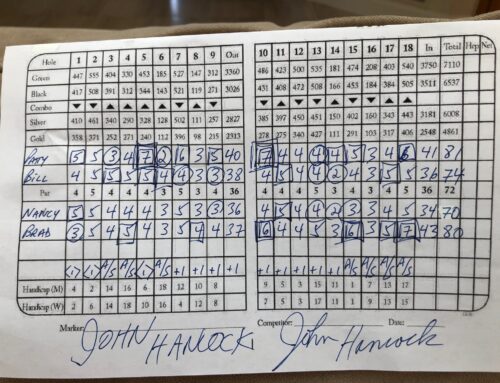 Hole 1 2 3 4 5 6 7 8 9 Out 10 11 12 13 14 15 16 17 18 In Total Hcp Net
Green 447 555 404 330 453 185 527 147 312 3360 486 423 500 535 181 474 208 403 540 3750 7110
Black 417 508 391 312 143 521 119 271 3026 508 166 453 184 384 505 3511 6537
Combo
Silver 410 461 340 290 328 124 112 257 2827 385 397 450 451 150 402 164 333 449 3181 6008
Gold 358 371 252 271 240 112 396 98 215 2313 278 275 340 427 111 291 103 317 406 2548 4861
PATTY 5 5 3 4 7 2 6 3 5 40 7 4 4 4 4 5 3 4 6 41 81
BILL 4 5 5 5 5 4 4 3 3 38 4 5 4 4 2 4 3 5 5 36 74
Par 4 5 4 4 4 3 5 3 4 36 36 72
NANCY 5 5 4 4 4 3 5 3 3 36 4 5 4 4 2 3 3 4 5 34 70
BRAD 3 5 4 5 4 3 5 4 4 37 6 4 4 5 3 6 3 5 7 43 80
<1> <1> A/S A/S <1> A/S +1 +1 +1 +1 +1 +1 +1 +1 A/S A/S A/S A/S
Handicap (M) 4 2 14 16 6 18 12 10 8 9 7 5 3 15 11
Handicap (W) 2 6 14 18 10 16 4 12 8 7 9 5 3 17
Marker: JOHN HANCOCK Competitor: John Hancock Date: